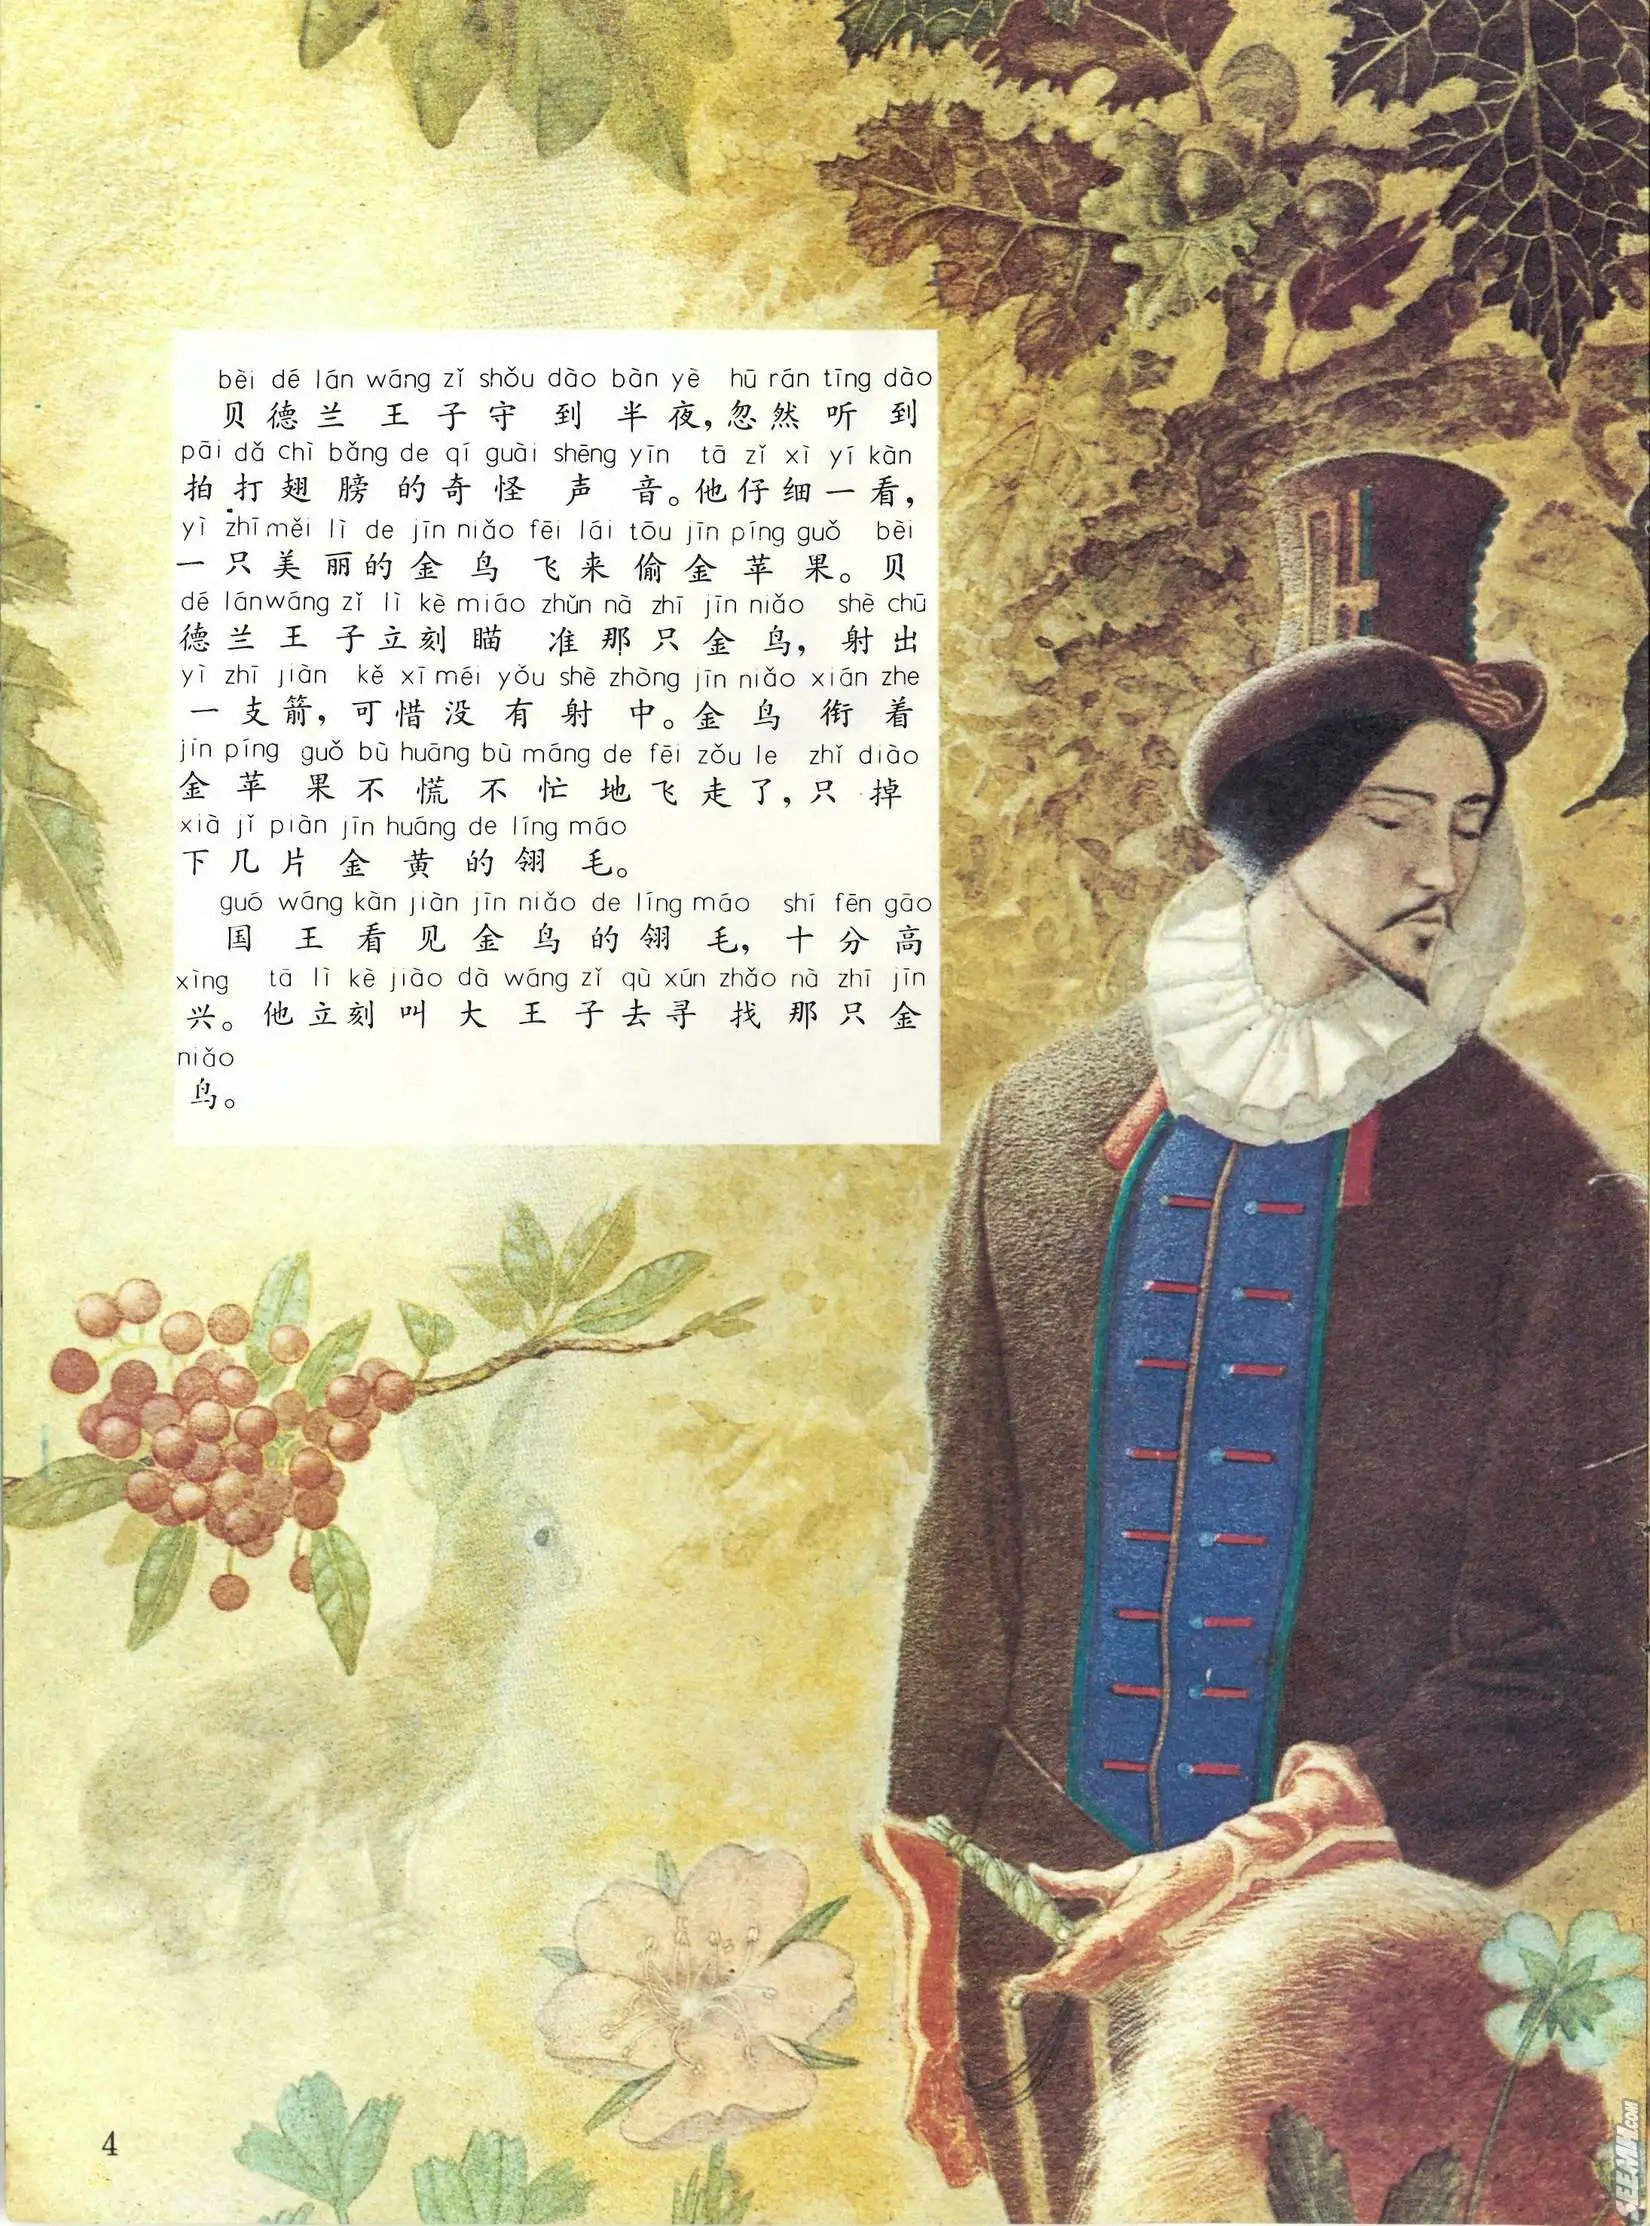 bèi dé lán wáng zǐ shǒu dào bàn yè hū rán tīng dào
贝德兰王子守到半夜,忽然听到
pāi dǎ chì bǎng de qí guài shēng yīn tā zǐ xì yí kàn
拍打翅膀的奇怪声音。他仔细一看,
yì zhī měi lì de jīn niǎo fēi lái tōu jīn píng guǒ bèi
一只美丽的金鸟飞来偷金苹果。贝
dé lánwáng zǐ lì kè miáo zhǔn nà zhī jīn niǎo shè chū
德兰王子立刻瞄准那只金鸟,射出
yì zhī jiàn kě xī méi yǒu shè zhòng jīn niǎo xián zhe
一支箭,可惜没有射中。金鸟衔着
jīn píng guǒ bù huāng bù máng de fēi zǒu le zhǐ diào
金苹果不慌不忙地飞走了,只掉
xià jǐ piàn jīn huáng de líng máo
下几片金黄的翎毛。
guó wáng kàn jiàn jīn niǎo de líng máo shí fēn gāo
国王看见金鸟的翎毛,十分高
xìng tā lì kè jiào dà wáng zǐ qù xún zhǎo nà zhī jīn
兴。他立刻叫大王子去寻找那只金
niǎo
鸟。
4
SEEMH.COM